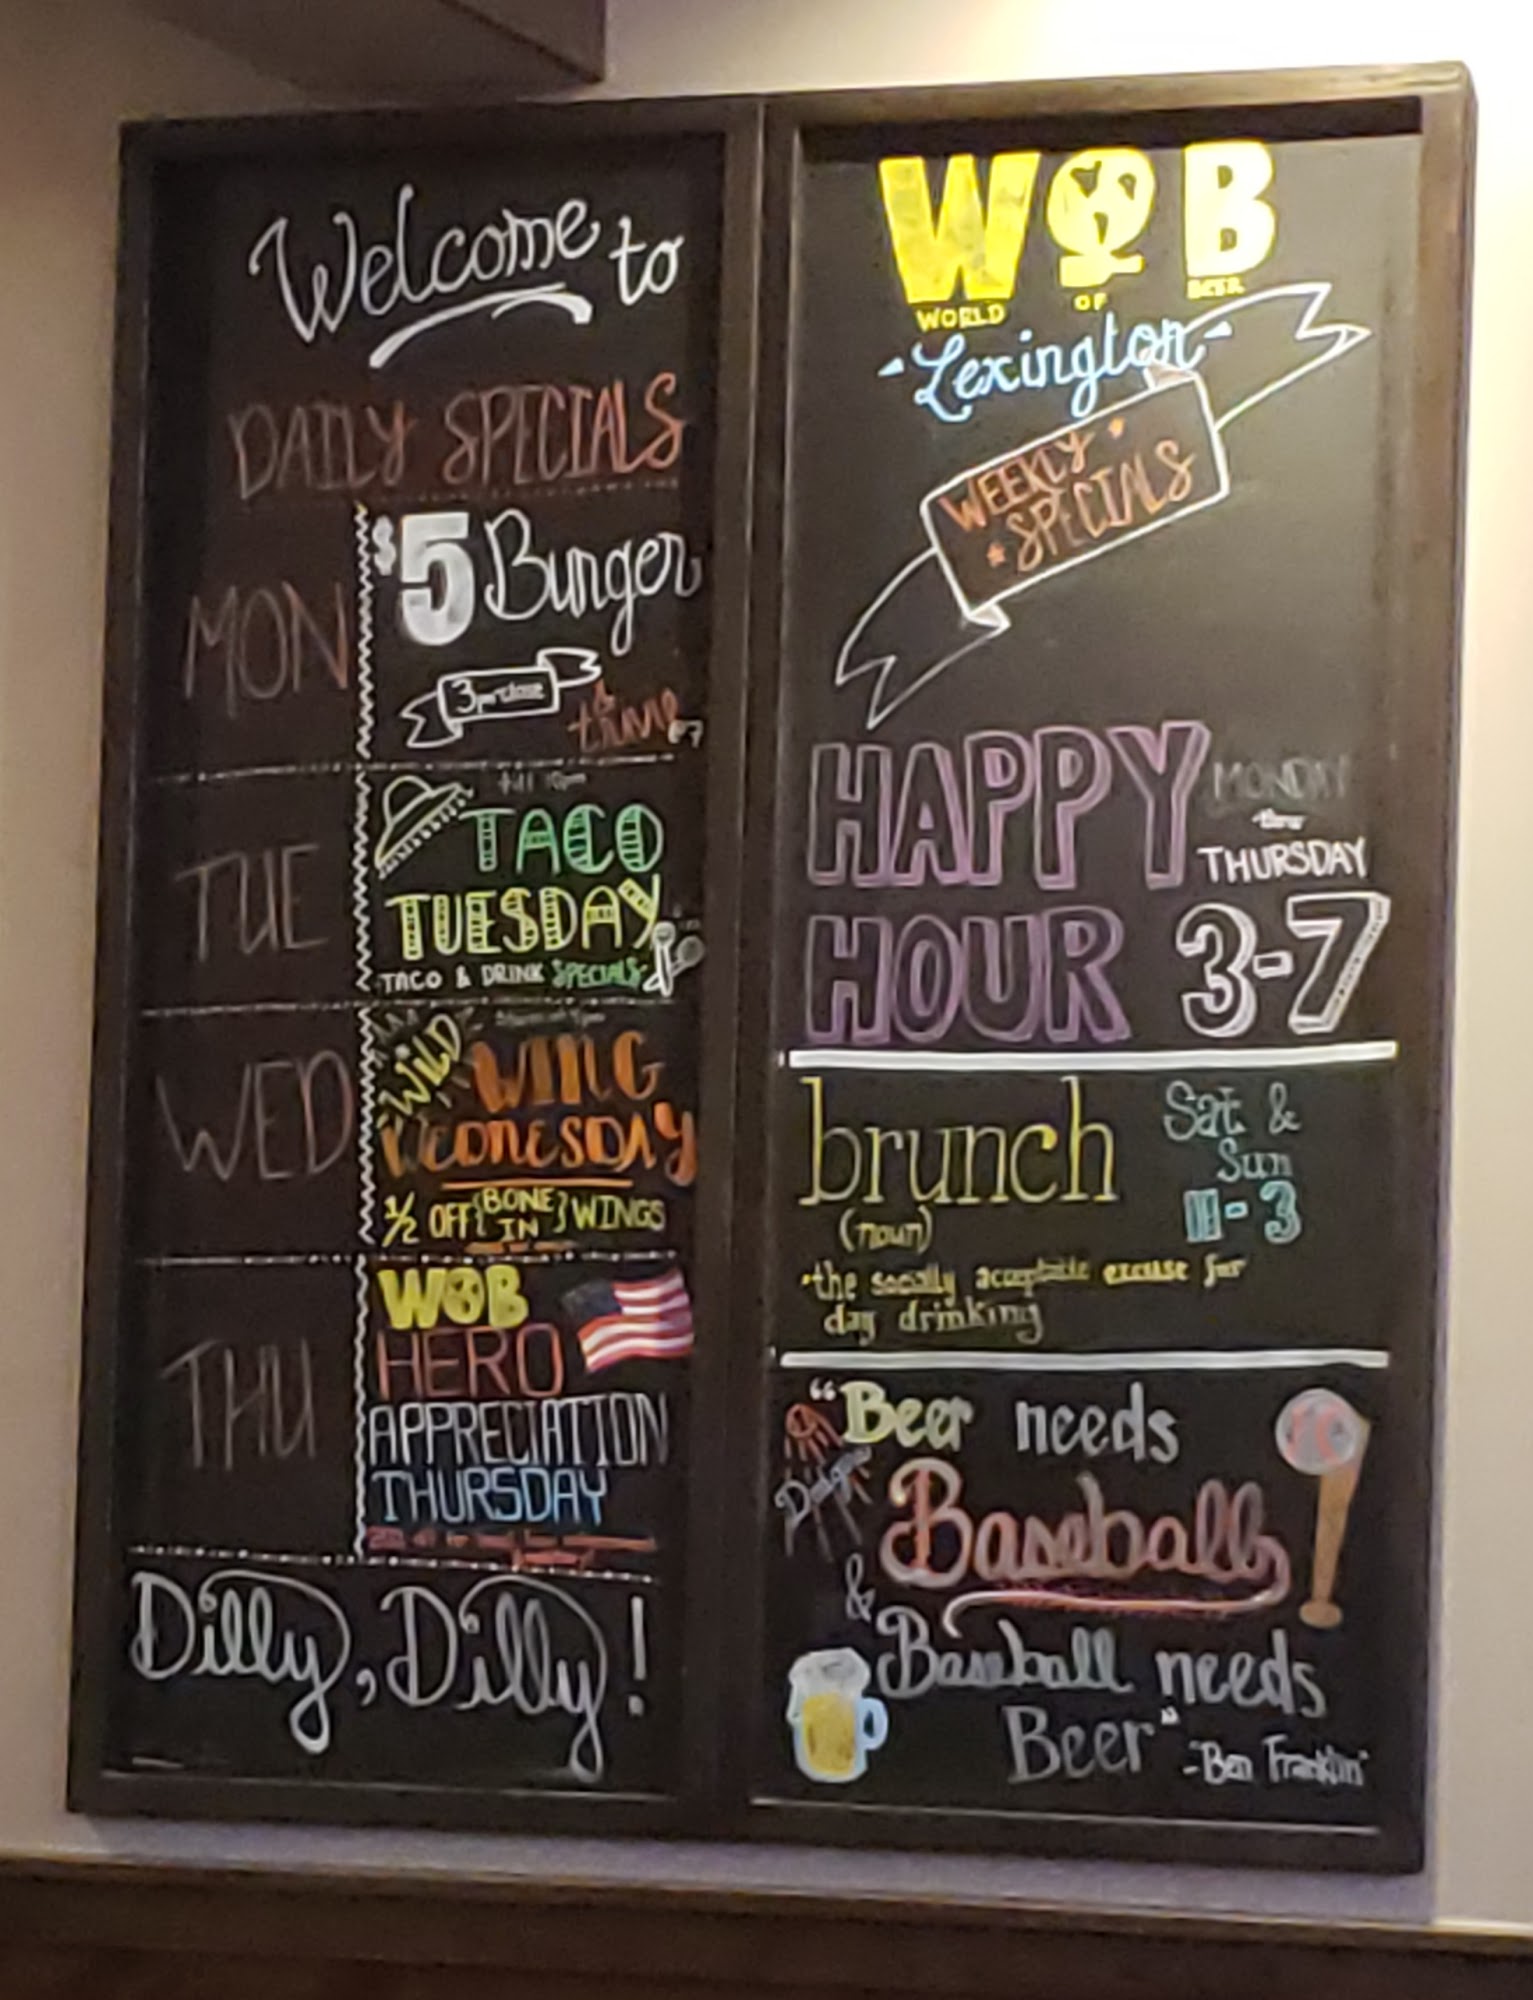 Welcome to
DAILY SPECIALS
MON
$5 Burger
TUE
TACO
TUESDAY
TACO & DRINK SPECIALS
WED
WILD WING
WEDNESDAY
1/2 OFF {BONE IN} WINGS
THU
WOB
HERO
APPRECIATION
THURSDAY
Dilly, Dilly!
WOB
WORLD OF BEER
-Lexington-
WEEKLY
SPECIALS
HAPPY
HOUR
MONDAY
thru
THURSDAY
3-7
brunch
(noun)
Sat &
Sun
11-3
•the socially acceptable excuse for
day drinking
"Beer needs
Baseball
& Baseball needs
Beer"
-Ben Franklin